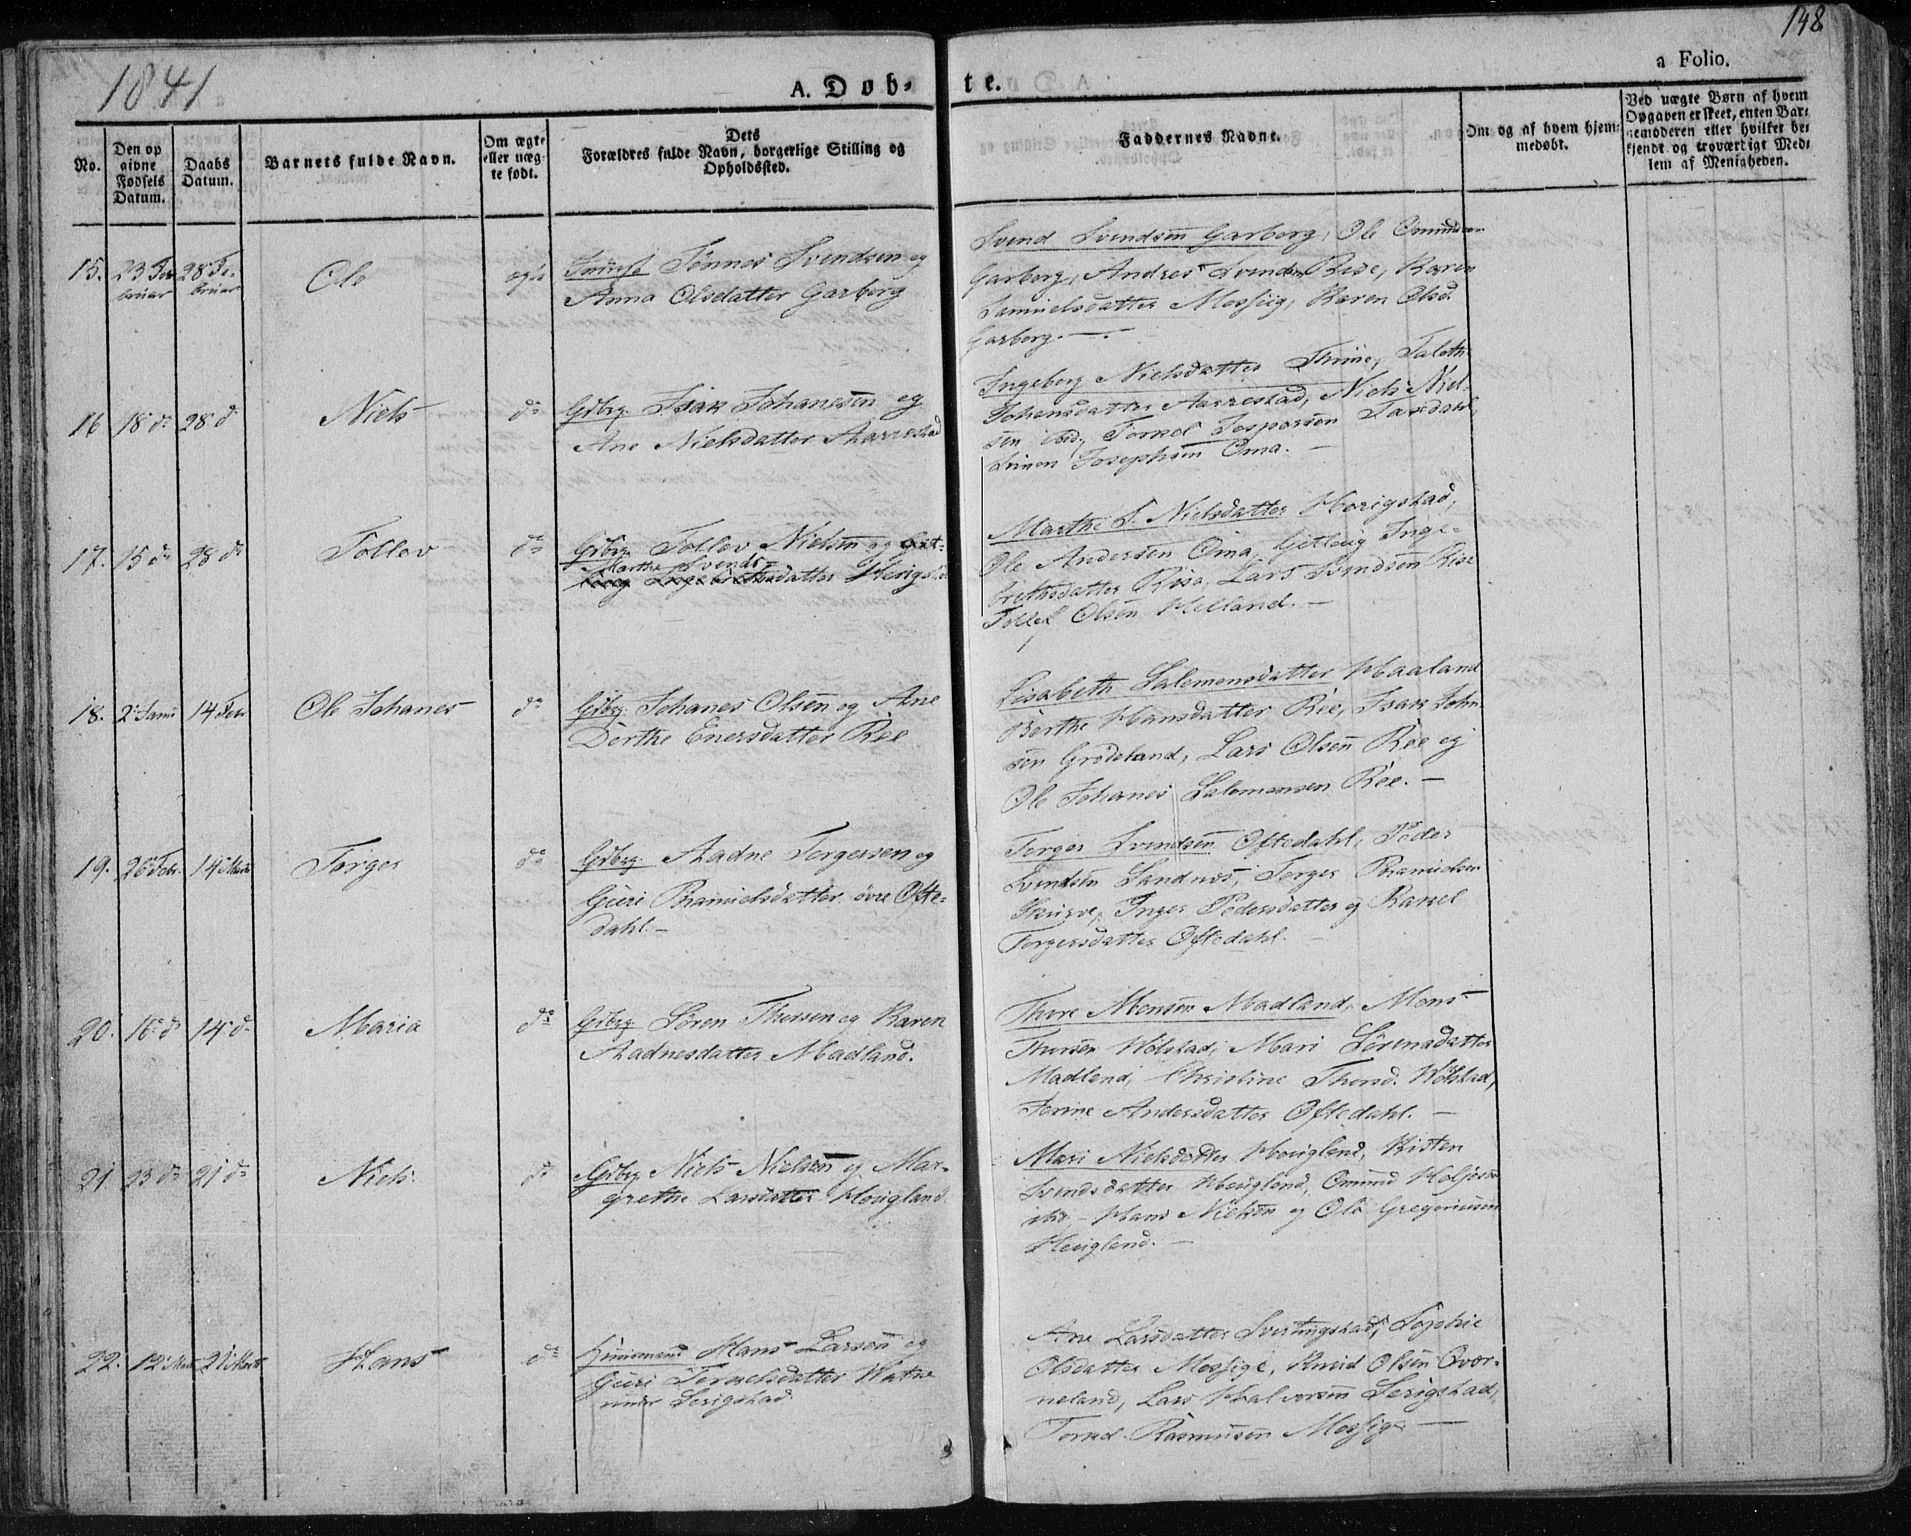 148
1841
A. Døb-
te.
a Folio.
No.
Den op
givne
Fødsels
Datum.
Daabs
Datum.
Barnets fulde Navn.
Om ægte
eller uæg-
te født.
Dets
Forældres fulde Navn, borgerlige Stilling og
Opholdssted.
Faddernes Navne.
Om og af hvem hjem-
medøbt.
Ved uægte Børn af hvem
Opgaven er skeet, enten Bar-
nemoderen eller hvilket be-
kjendt og troværdigt Med-
lem af Menigheden.
15. 23 Fe- 28 Fe-
bruar bruar
Ole
ægte
Tønnes Svendsen og
Anna Olsdatter Garborg
Svend Svendsen Garborg, Ole Omundsen
Garborg, Andres Svendsen Rise, Karen
Samuelsdatter Mossiig, Karen Olsd.
Garborg. —
16 18 do 28 d
Niels
do
Gdbrg. Isak Johanesen og
Ane Nielsdatter Aarrestad
Ingeborg Nielsdatter Thiine, Taleth
Johansdatter Aarrestad, Niels Niel-
sen ibid, Torkel Jesparsen Taxdahl,
Simon Josephsen Oma. —
17. 15 do 28 do
Tollev
do
Gdbrg. Tollev Nielsen og Git-
Martha Svends-
borg Ingebrethsdatter Herigst
Marthe S. Nielsdatter Horigstad,
Ole Andersen Oma, Gitlaug Inge-
brethsdatter Risa, Lars Svendsen Rise
Tollef Olsen Helland. —
18. 2 Janu 14 Febr
Ole Johanes
do
Gdbrg. Johanes Olsen og Ane
Dorthe Enersdatter Ree
Lisabeth Salomonsdatter Haaland
Berthe Hansdatter Ree, Isak John-
sen Grødeland, Lars Olsen Ree og
Ole Johanes Salomonsen Ree. —
19. 26 Febr. 14 Marts
Torger
do
Gdbrg. Aadne Torgersen og
Guri Thamielsdatter øvre Ofte-
dahl. —
Torger Svendsen Oftedahl, Peder
Svendsen Sandnes, Torger Thamielsen
Skurve, Inger Pedersdatter og Rakel
Torgersdatter Oftedahl. —
20. 16 d 14 d.
Maria
do
Gdbrg. Søren Thorsen og Karen
Aadnesdatter Madland.
Thore Monsen Madland, Mons
Thorsen Hølstad, Mari Sørensdatter
Madland, Christine Thorsd. Hølstad,
Serine Andersdatter Oftedahl. —
21 23 do 21 do
Niels.
do
Gdbrg. Niels Nielsen og Mar-
grethe Larsdatter Høigland.
Mari Nielsdatter Høigland, Kisten
Svendsdatter Høigland, Omund Heljesen
ibid, — Hans Nielsen og Ole Gregoriussen
Høigland. —
22. 12 Marts 21 Marts
Hans
do
Huusmand Hans Larsen og
Guri Tormelsdatter Watne
under Serigstad.
Ane Larsdatter Svertingstad, Sophie
Olsdatter Mossige, Knud Olsen Over-
neland, Lars Halvorsen Serigstad,
Torkel Rasmusen Mossige —